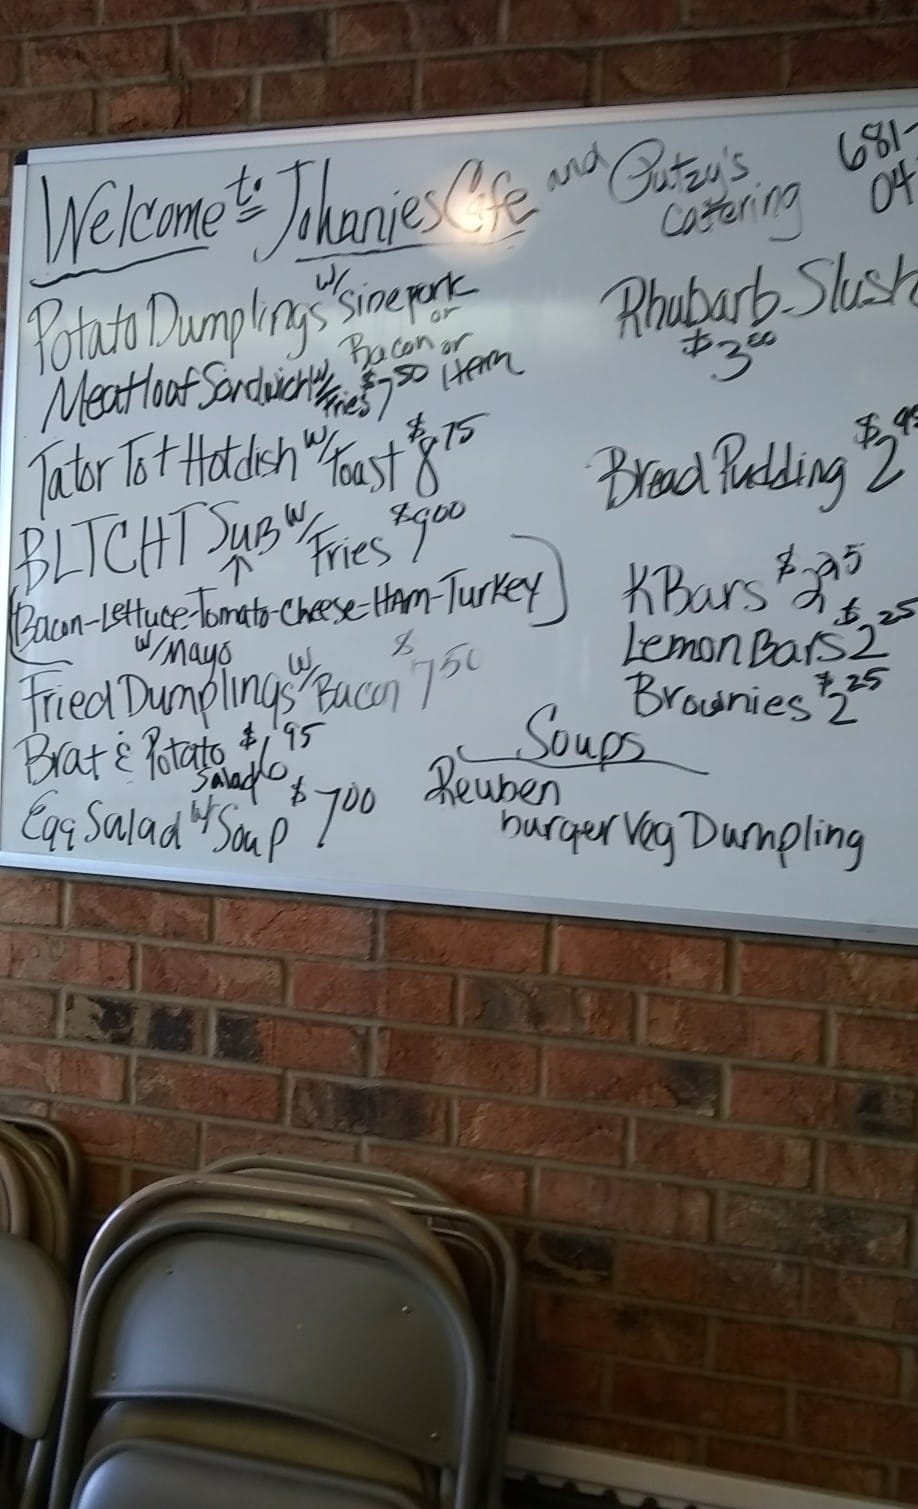 Welcome to: Johanies Cafe and Putzy's Catering 681-
04
Potato Dumplings w/ Sidepork or
Bacon or
Ham
Meatloaf Sandwich w/ Fries $7 50
Tator Tot Hotdish w/ Toast $8 75
BLTCHT SUB w/ Fries $9 00
(Bacon-Lettuce-Tomato-Cheese-HAm-Turkey)
w/ Mayo
Fried Dumplings w/ Bacon $7 50
Brat & Potato Salad $ 95
Egg Salad w/ Soup $7 00
Rhubarb Slush
$3 00
Bread Pudding $2
KBars $2 25
Lemon Bars $2 25
Brownies $2 25
Soups
Reuben
burger Veg Dumpling